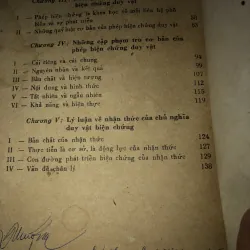 biện chứng duy vật
I — Phép biện chứng là khoa học về mối liên hệ phổ
biến và sự phát triển
II — Những quy luật cơ bản của phép biện chứng duy vật
Chương IV: Những cặp phạm trù cơ bản của
phép biện chứng duy vật
I — Cái riêng và cái chung 90
II — Nguyên nhân và kết quả
III — Bản chất và hiện tượng
IV — Nội dung và hình thức
V — Tất nhiên và ngẫu nhiên 112
VI — Khả năng và hiện thực 119
Chương V: Lý luận về nhận thức của chủ nghĩa
duy vật biện chứng
I — Bản chất của nhận thức 124
II — Thực tiễn là cơ sở, là động lực của nhận thức 127
III — Con đường phát triển biện chứng của nhận thức 129
IV — Vấn đề chân lý 130